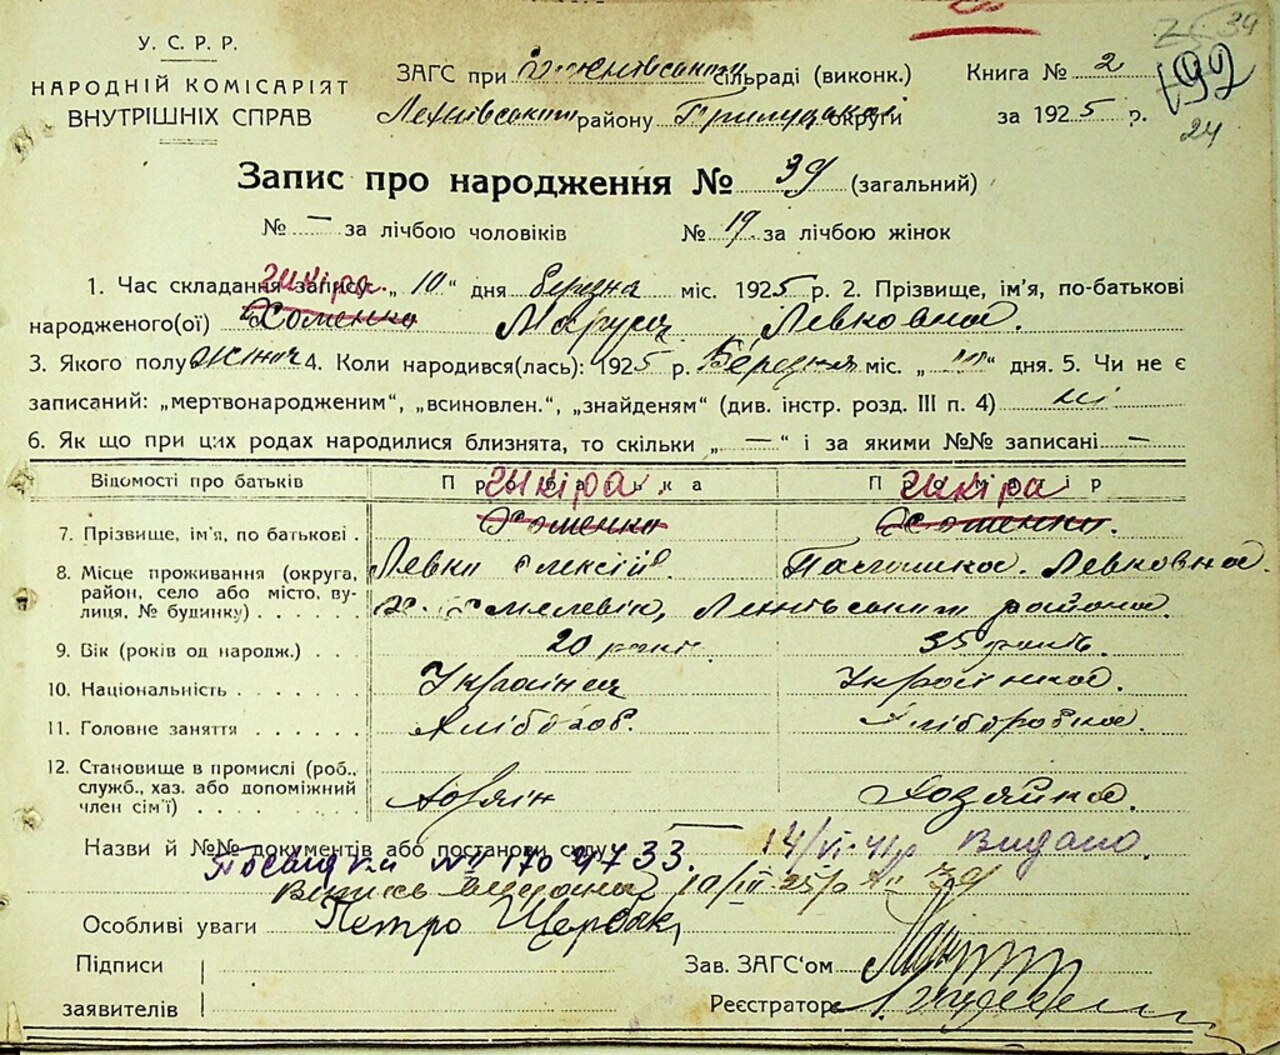 У. С. Р. Р.
НАРОДНІЙ КОМІСАРІЯТ
ВНУТРІШНІХ СПРАВ
ЗАГС при сільраді (виконк.)
Лехнівськім району Прилуцької округи
Книга № 2
за 1925 р.
34
192
24
Запис про народження № 39 (загальний)
№ — за лічбою чоловіків № 19 за лічбою жінок
Шкіра
1. Час складання запису: „ 10 “ дня березня міс. 1925 р. 2. Прізвище, ім'я, по-батькові
народженого(ої) Хоменко Маруся Левковна.
3. Якого полу жіноч 4. Коли народився(лась): 1925 р. Березня міс. „ “ дня. 5. Чи не є
записаний: „мертвонародженим“, „всиновлен.“, „знайденям“ (див. інстр. розд. III п. 4) ні
6. Як що при цих родах народилися близнята, то скільки „ — “ і за якими №№ записані —
Відомості про батьків Про батька Про матір
Шкіра. Шкіра
7. Прізвище, ім'я, по батькові . Хоменко Хоменко.
Левко Олексійв. Левковна.
8. Місце проживання (округа, район, село або місто, вулиця, № будинку) х. Лехнівським района.
9. Вік (років од народж.) . . . 20 років. 35 років.
10. Національність . . . . . . . Українец Українка.
11. Головне заняття . . . . . . Хлібороб. Хліборобка.
12. Становище в промислі (роб., служб., хаз. або допоміжний член сім'ї) . . . . . Хозяїн Хозяйка.
Назви й №№ документів або постанови суду — 14/VI-41р Видано.
№ 170 4733.
Випись видана 10/III-25р № 39
Особливі уваги Петро Щербак
Підписи
заявителів
Зав. ЗАГС'ом
Реєстратор